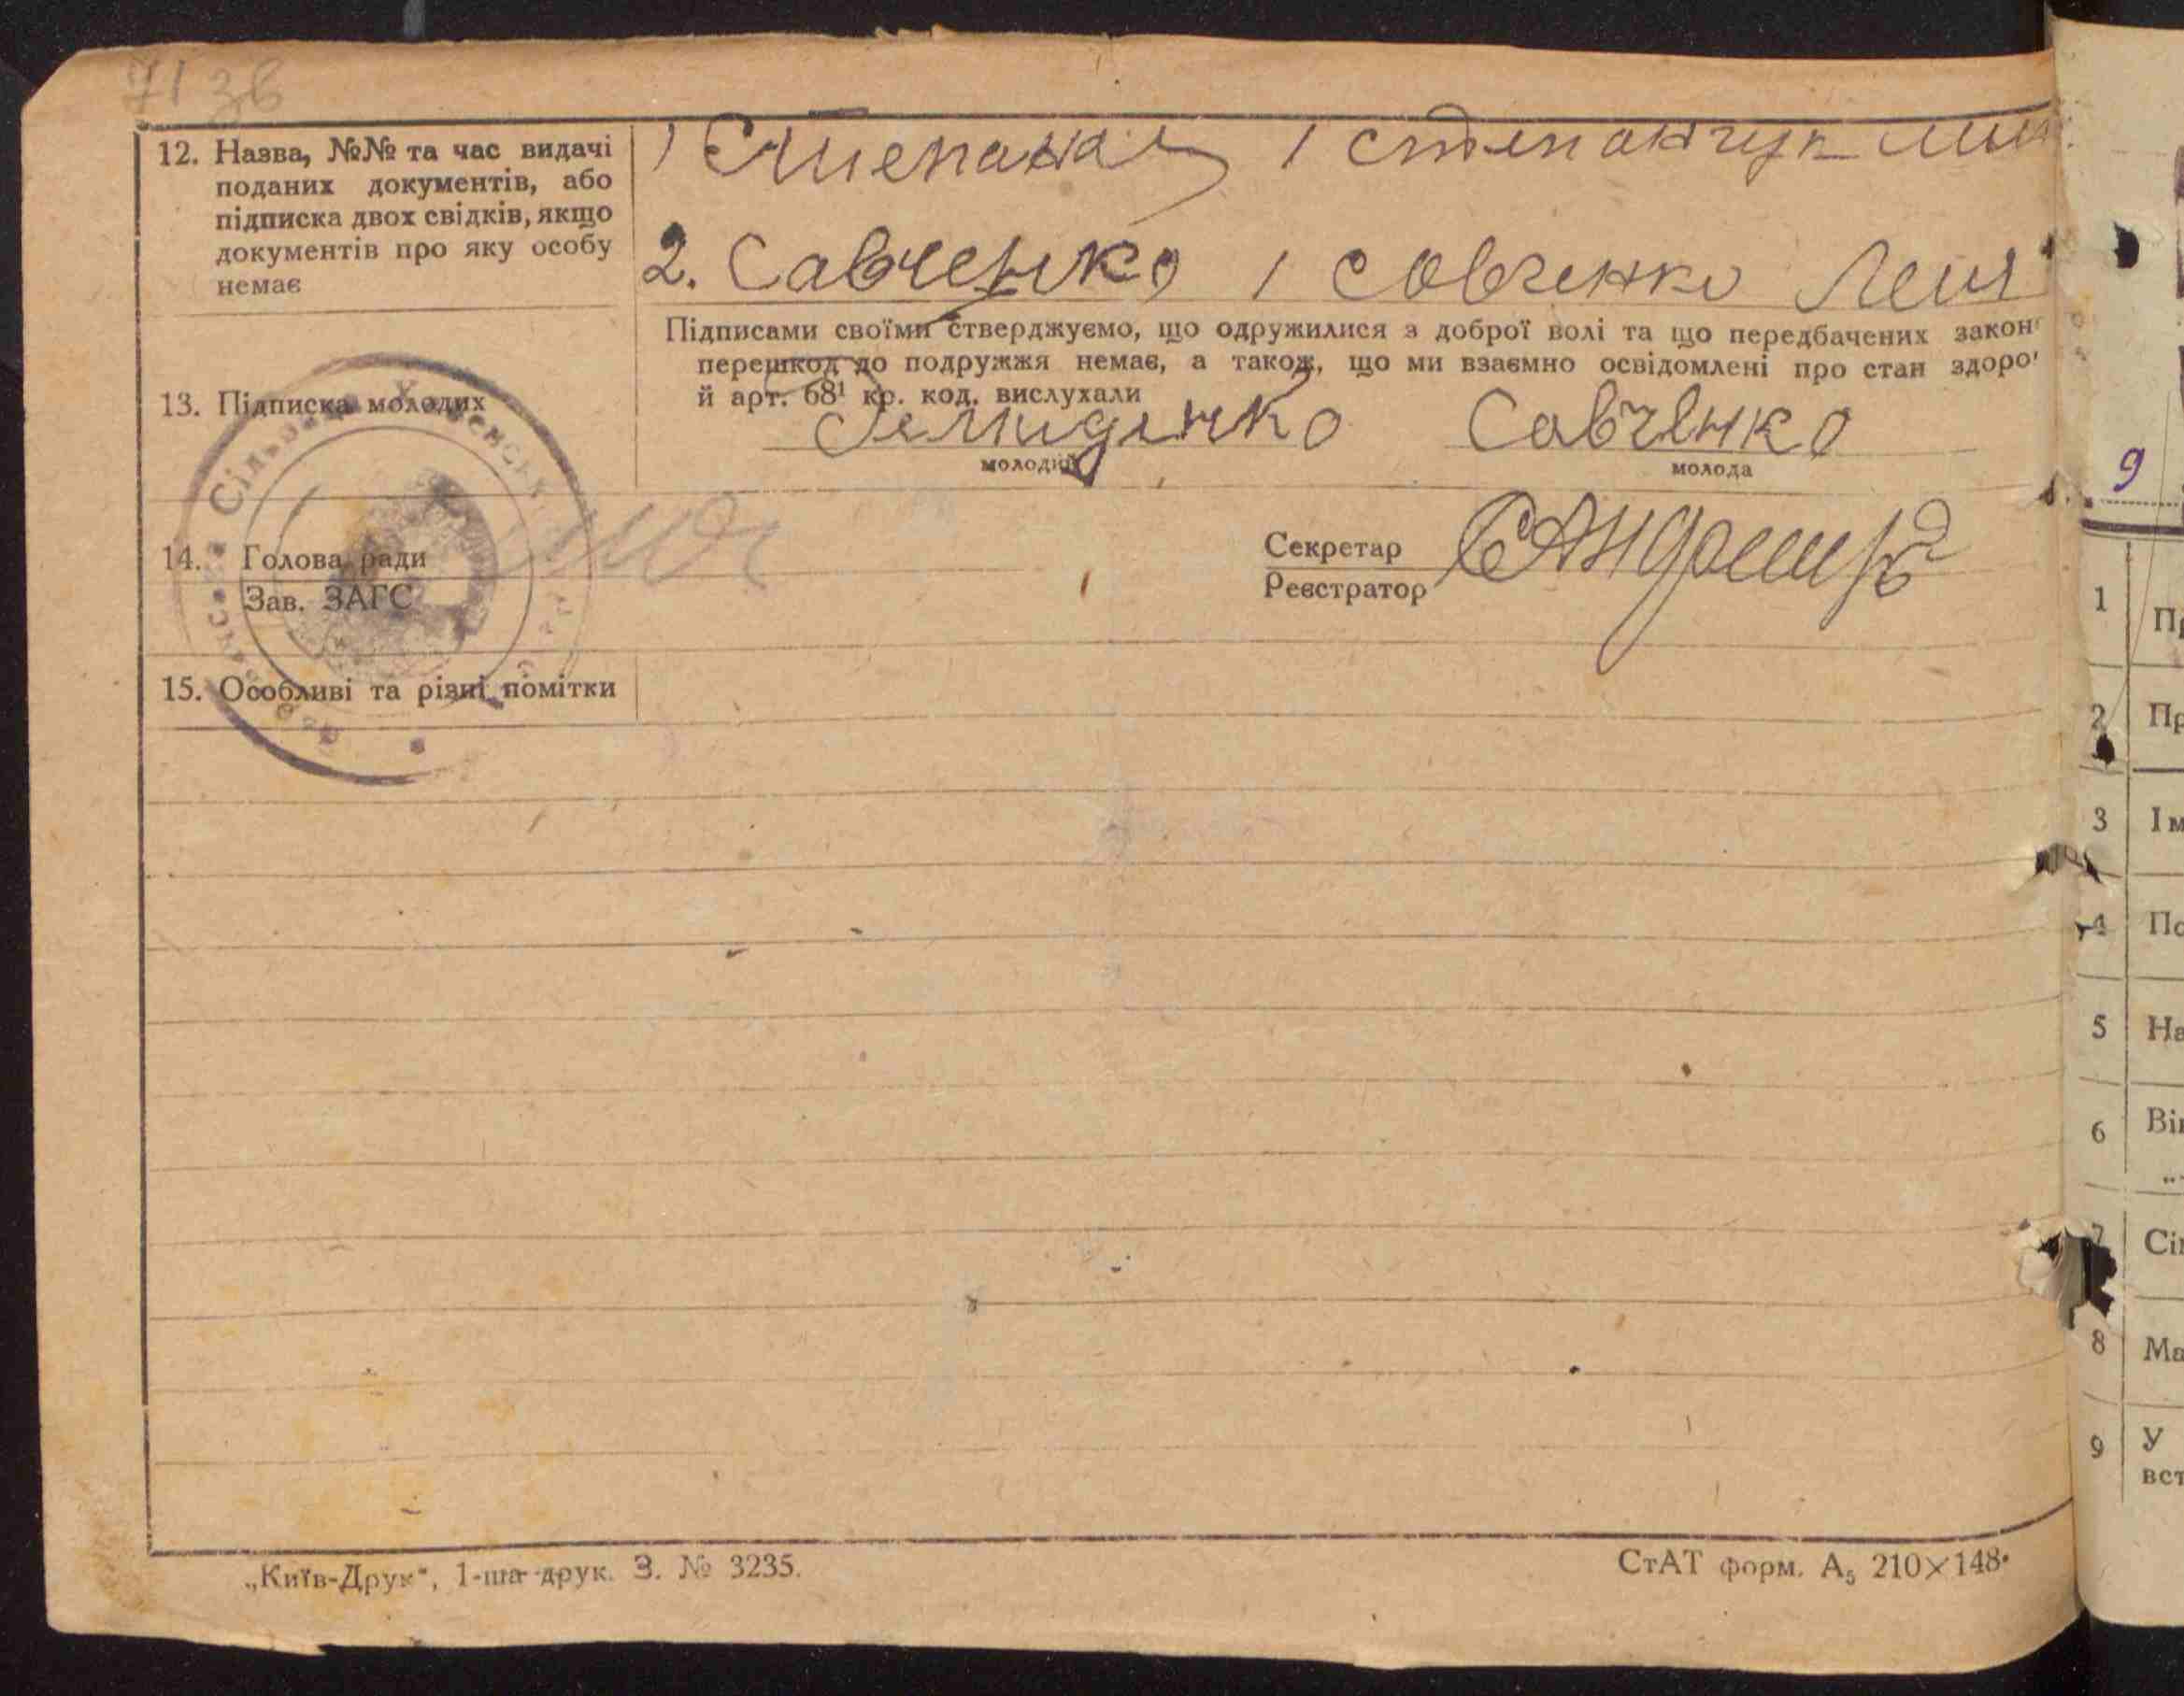 71 зв
12. Назва, №№ та час видачі
поданих документів, або
підписка двох свідків, якщо
документів про яку особу
немає
1
2. Савченко / Савченко
Підписами своїми стверджуємо, що одружилися з доброї волі та що передбачених закон
перешкод до подружжя немає, а також, що ми взаємно освідомлені про стан здоро
й арт. 68¹ кр. код. вислухали
13. Підписка молодих
Савченко
молодий молода
14. Голова ради
Зав. ЗАГС
Секретар
Реєстратор
15. Особливі та різні помітки
„Київ-Друк“, 1-ша друк. З. № 3235.
СтАТ форм. А₅ 210×148
9
1
Пр
2 Пр
3 Ім
4 По
5 На
6 Ві
7 Сі
8 Ма
9 У
вст